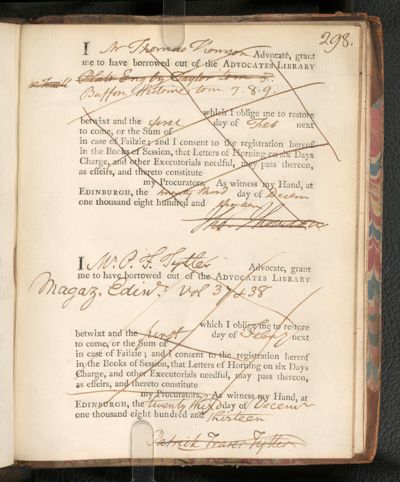 298.
I Mr Thomas Thomson Advocate, grant
me to have borrowed out of the ADVOCATES LIBRARY
Plato Eng by Taylor tom 5.
Buffon Histoire tom 7. 8. 9.
which I oblige me to restore
betwixt and the first day of Feb next
to come, or the Sum of
in case of Failzie; and I consent to the registration hereof
in the Books of Session, that Letters of Horning on six Days
Charge, and other Executorials needful, may pass thereon,
as effeirs, and thereto constitute
my Procurators. As witness my Hand, at
EDINBURGH, the twenty third day of Decem
one thousand eight hundred and thirteen
Tho. Thomson
I Mr. P. F. Tytler Advocate, grant
me to have borrowed out of the ADVOCATES LIBRARY
Magaz. Edinr. Vol 37 & 38
which I oblige me to restore
betwixt and the first day of Feby next
to come, or the Sum of
in case of Failzie; and I consent to the registration hereof
in the Books of Session, that Letters of Horning on six Days
Charge, and other Executorials needful, may pass thereon,
as effeirs, and thereto constitute
my Procurators. As witness my Hand, at
EDINBURGH, the twenty third day of Decemr
one thousand eight hundred and thirteen
Patrick Fraser Tytler